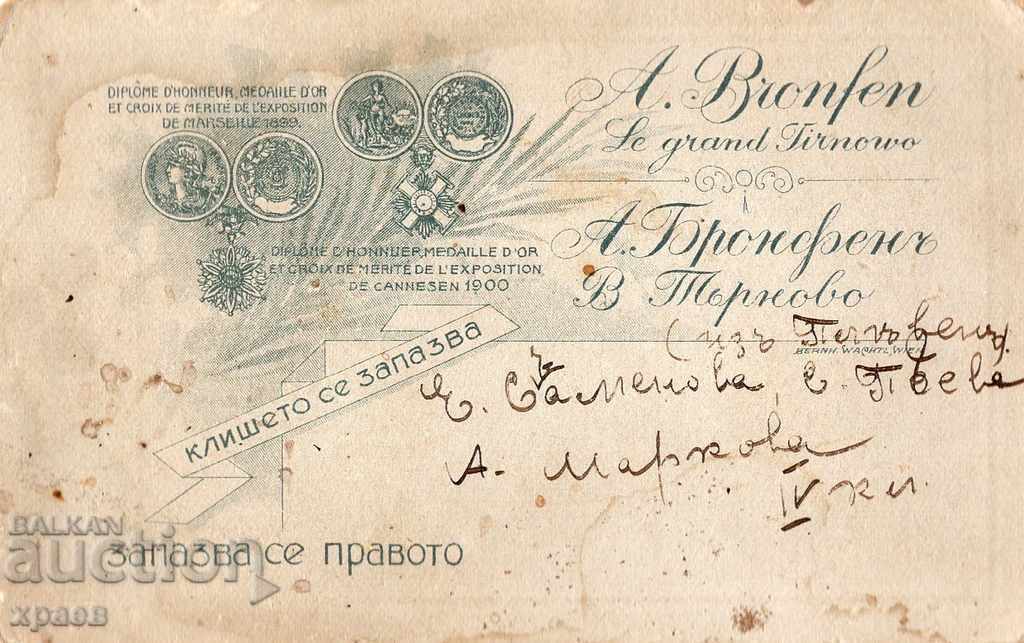 DIPLÔME D'HONNEUR, MEDAILLE D'OR
ET CROIX DE MERITE DE L'EXPOSITION
DE MARSEILLE 1899.
A. Bronfen
Le grand Tirnowo
А. Бронфенъ
В Търново
DIPLÔME D'HONNUER, MEDAILLE D'OR
ET CROIX DE MERITE DE L'EXPOSITION
DE CANNESEN 1900
(изъ
BERNH. WACHTL, WIEN
КЛИШЕТО СЕ ЗАПАЗВА
Саменова, С.
А. Маркова
IV кл.
ЗАПАЗВА СЕ ПРАВОТО
BALKAN
auction
храов